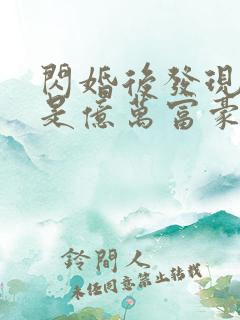 閃婚後發現
是億萬富豪
鈴間人
未經同意禁止轉載